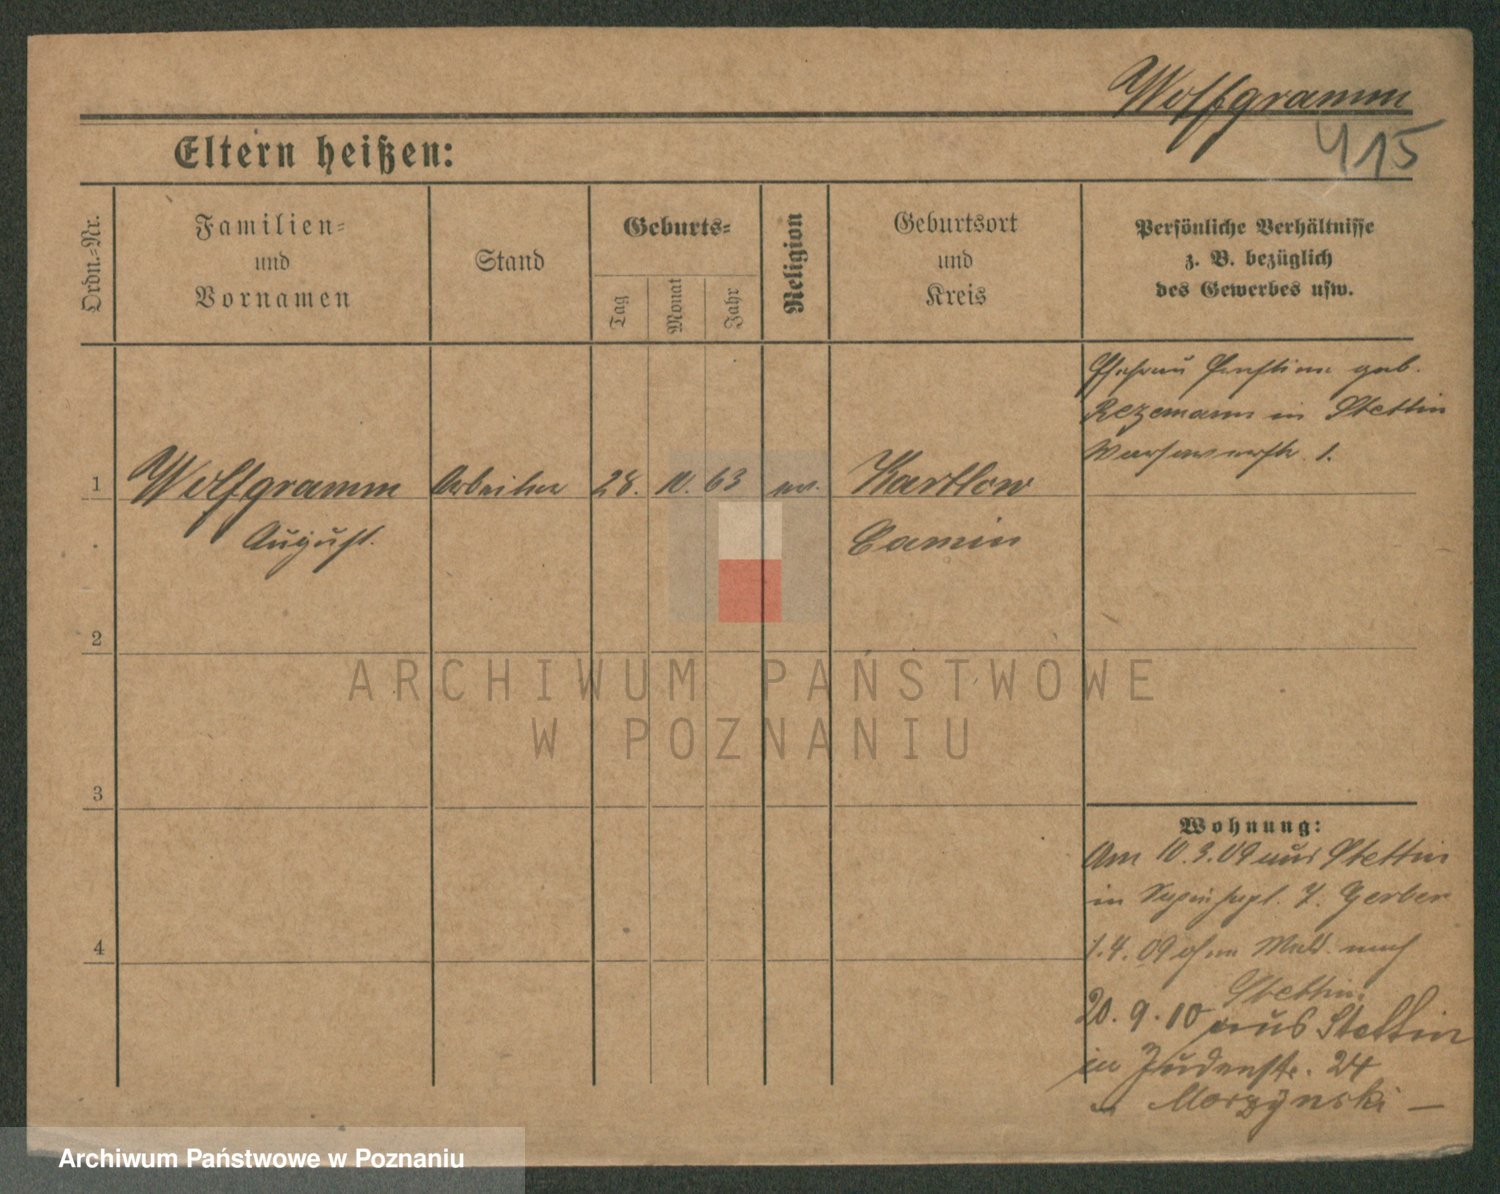 Wolfgramm
415
Eltern heißen:
Ordn.-Nr.
Familien=
und
Vornamen
Stand
Geburts=
Tag
Monat
Jahr
Religion
Geburtsort
und
Kreis
Persönliche Verhältnisse
z. B. bezüglich
des Gewerbes usw.
Ehefrau geb.
in Stettin
1.
1
Wolfgramm
August.
Arbeiter
28.
10.
63
ev.
Kartlow
Camin
2
3
4
Wohnung:
Am 10.3.09 aus Stettin
in 7. Gerber
1.4.09 ohne Meld. nach
Stettin.
20.9.10 aus Stettin
in Judenstr. 24
Morzynski —
ARCHIWUM PAŃSTWOWE
W POZNANIU
Archiwum Państwowe w Poznaniu